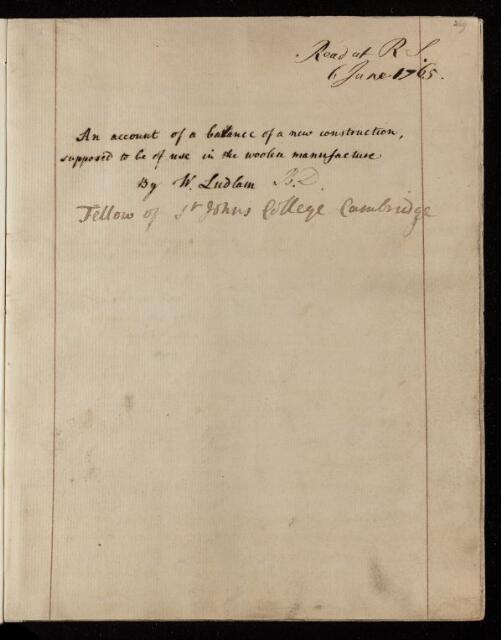 Read at R S.
6 June 1765.
An account of a balance of a new construction,
supposed to be of use in the woolen manufacture
By W. Ludlam B.D.
Fellow of St Johns College Cambridge